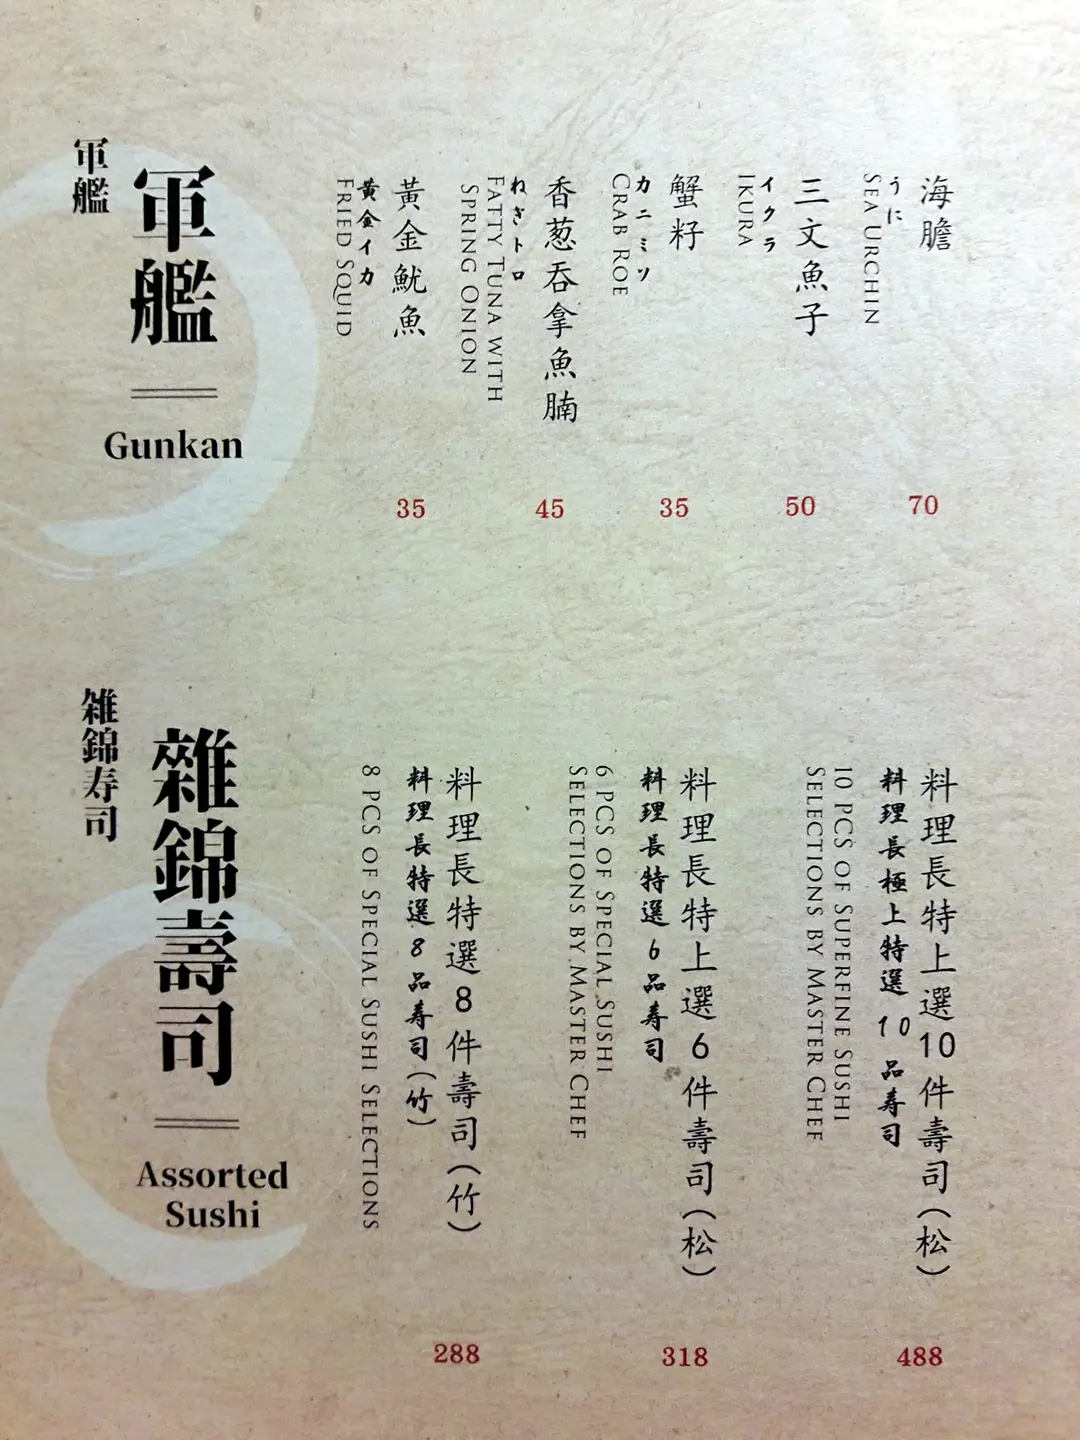 海膽
うに
SEA URCHIN
70
三文魚子
イクラ
IKURA
50
蟹籽
カニミソ
CRAB ROE
35
香葱吞拿魚腩
ねぎトロ
FATTY TUNA WITH
SPRING ONION
45
黃金魷魚
黄金イカ
FRIED SQUID
35
軍艦
軍艦
Gunkan
料理長特上選10件壽司(松)
料理長極上特選10品寿司
10 PCS OF SUPERFINE SUSHI
SELECTIONS BY MASTER CHEF
488
料理長特上選6件壽司(松)
料理長特選6品寿司
6 PCS OF SPECIAL SUSHI
SELECTIONS BY MASTER CHEF
318
料理長特選8件壽司(竹)
料理長特選8品寿司(竹)
8 PCS OF SPECIAL SUSHI SELECTIONS
288
雜錦壽司
雑錦寿司
Assorted
Sushi